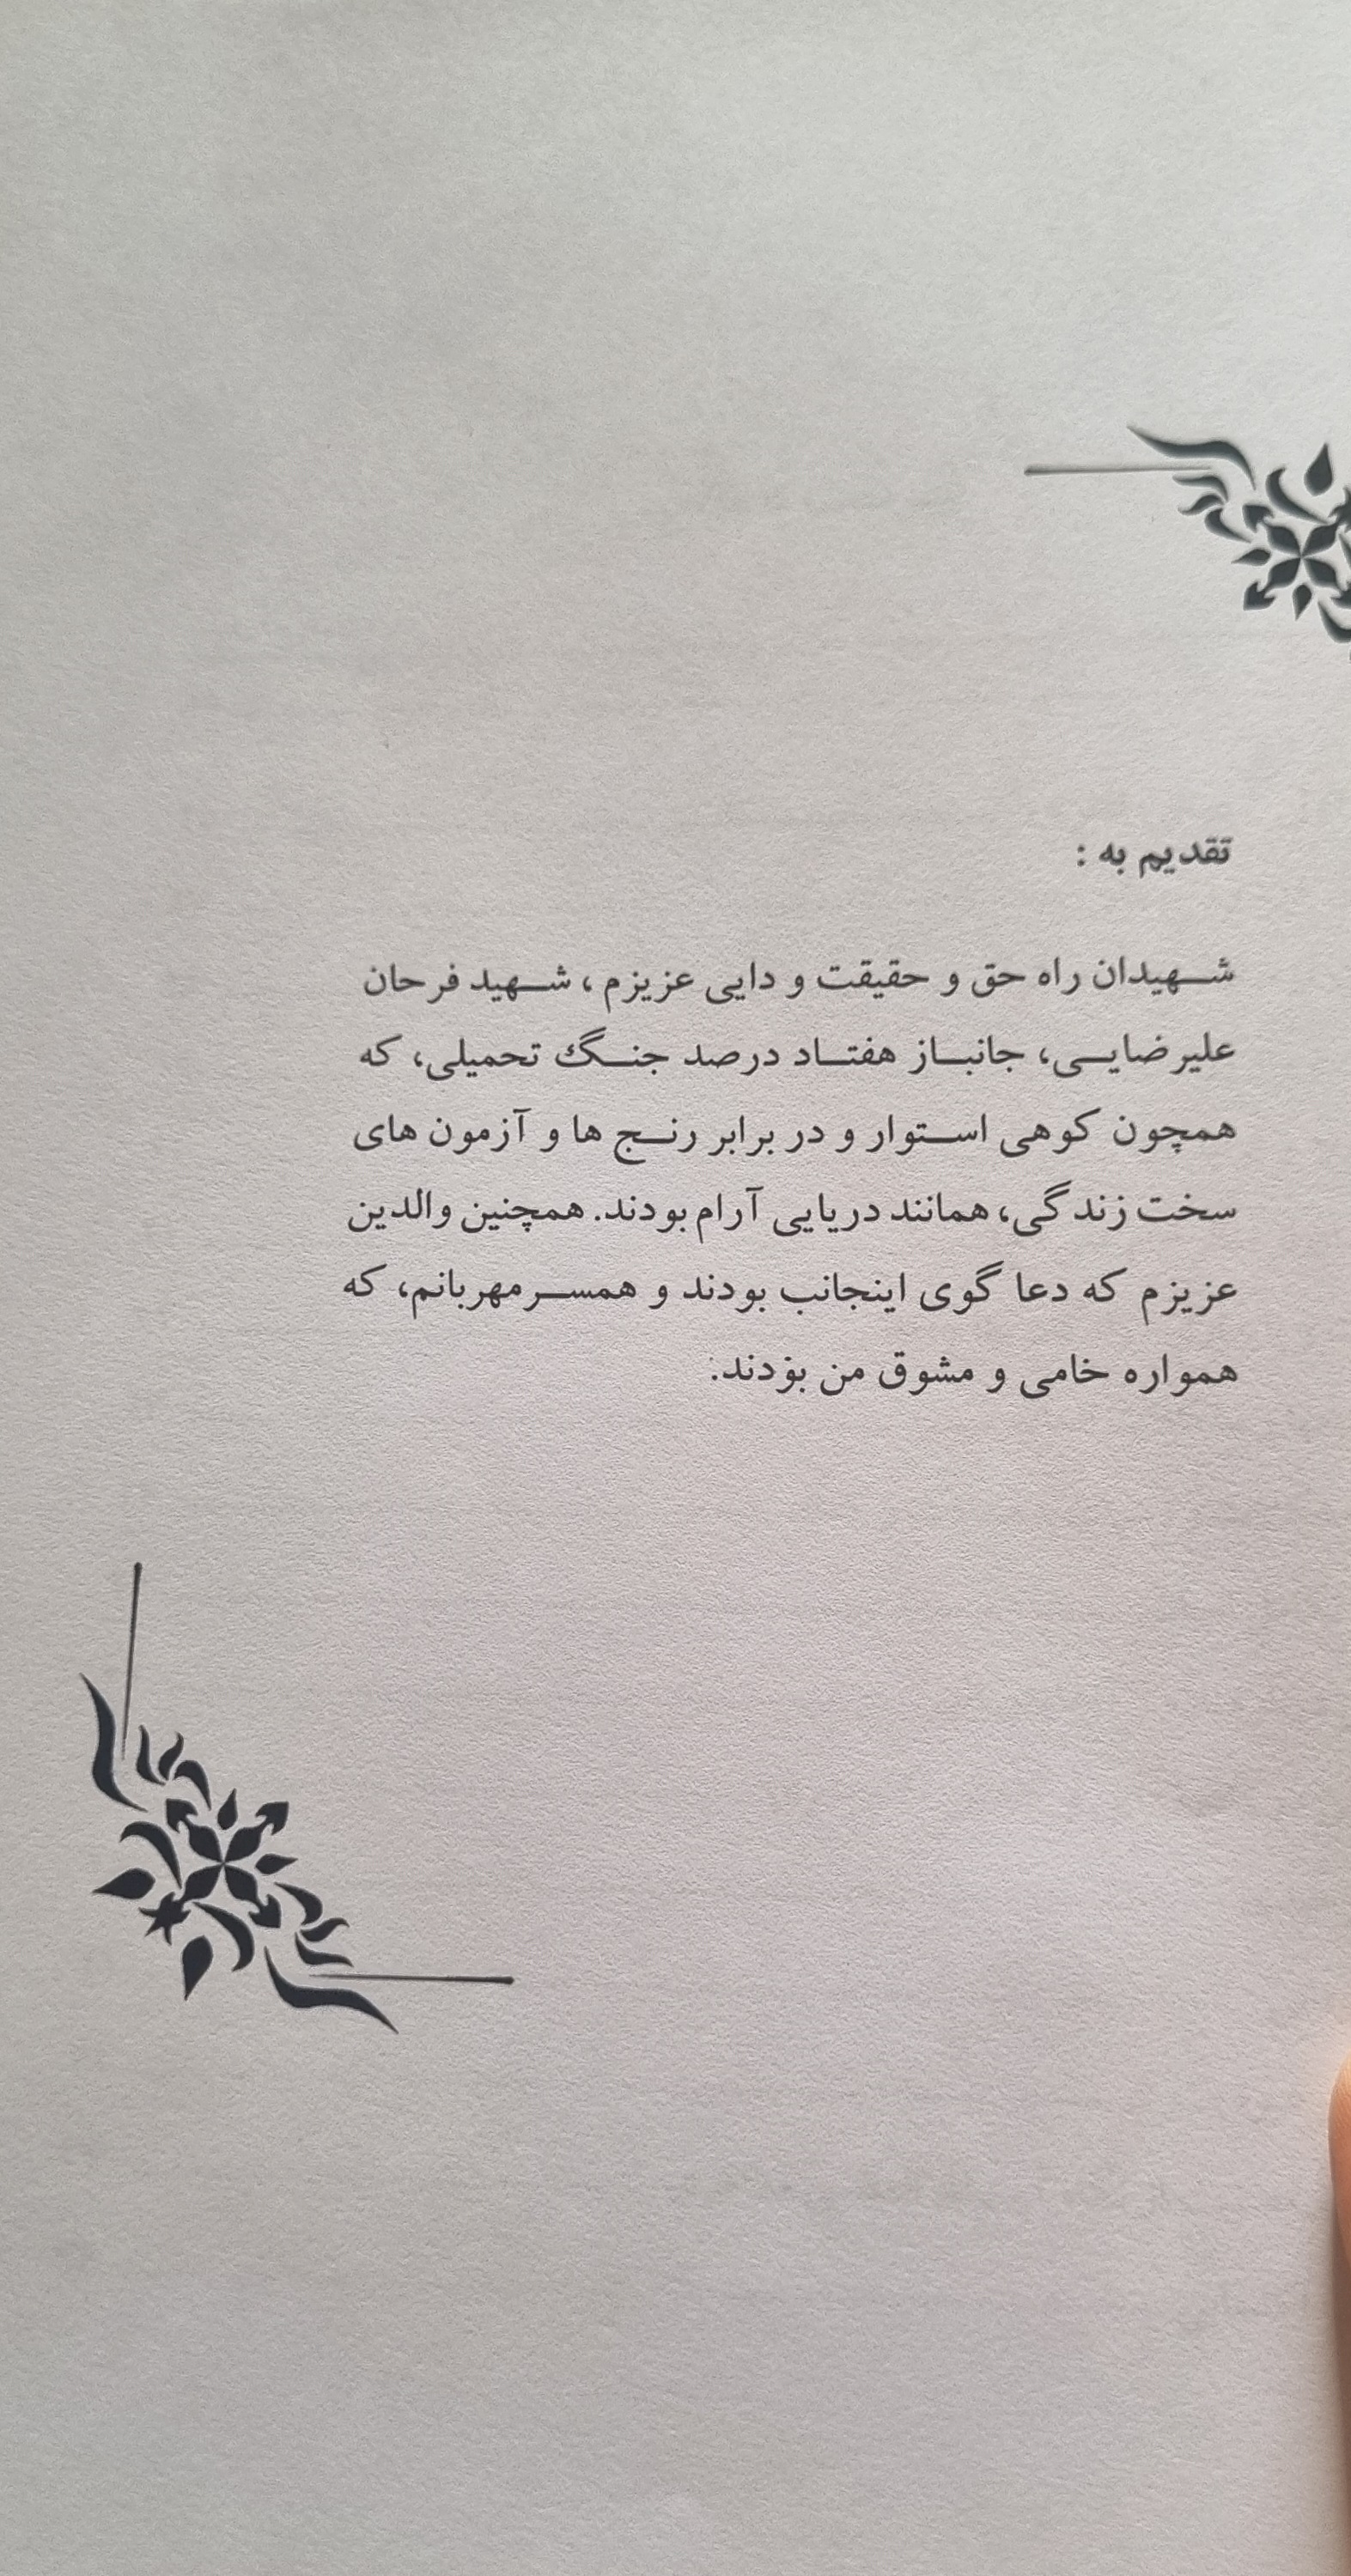 تقدیم به :
شهیدان راه حق و حقیقت و دایی عزیزم ، شهید فرحان
علیرضایی، جانباز هفتاد درصد جنگ تحمیلی، که
همچون کوهی استوار و در برابر رنج ها و آزمون های
سخت زندگی، همانند دریایی آرام بودند. همچنین والدین
عزیزم که دعا گوی اینجانب بودند و همسرمهربانم، که
همواره خامی و مشوق من بودند.